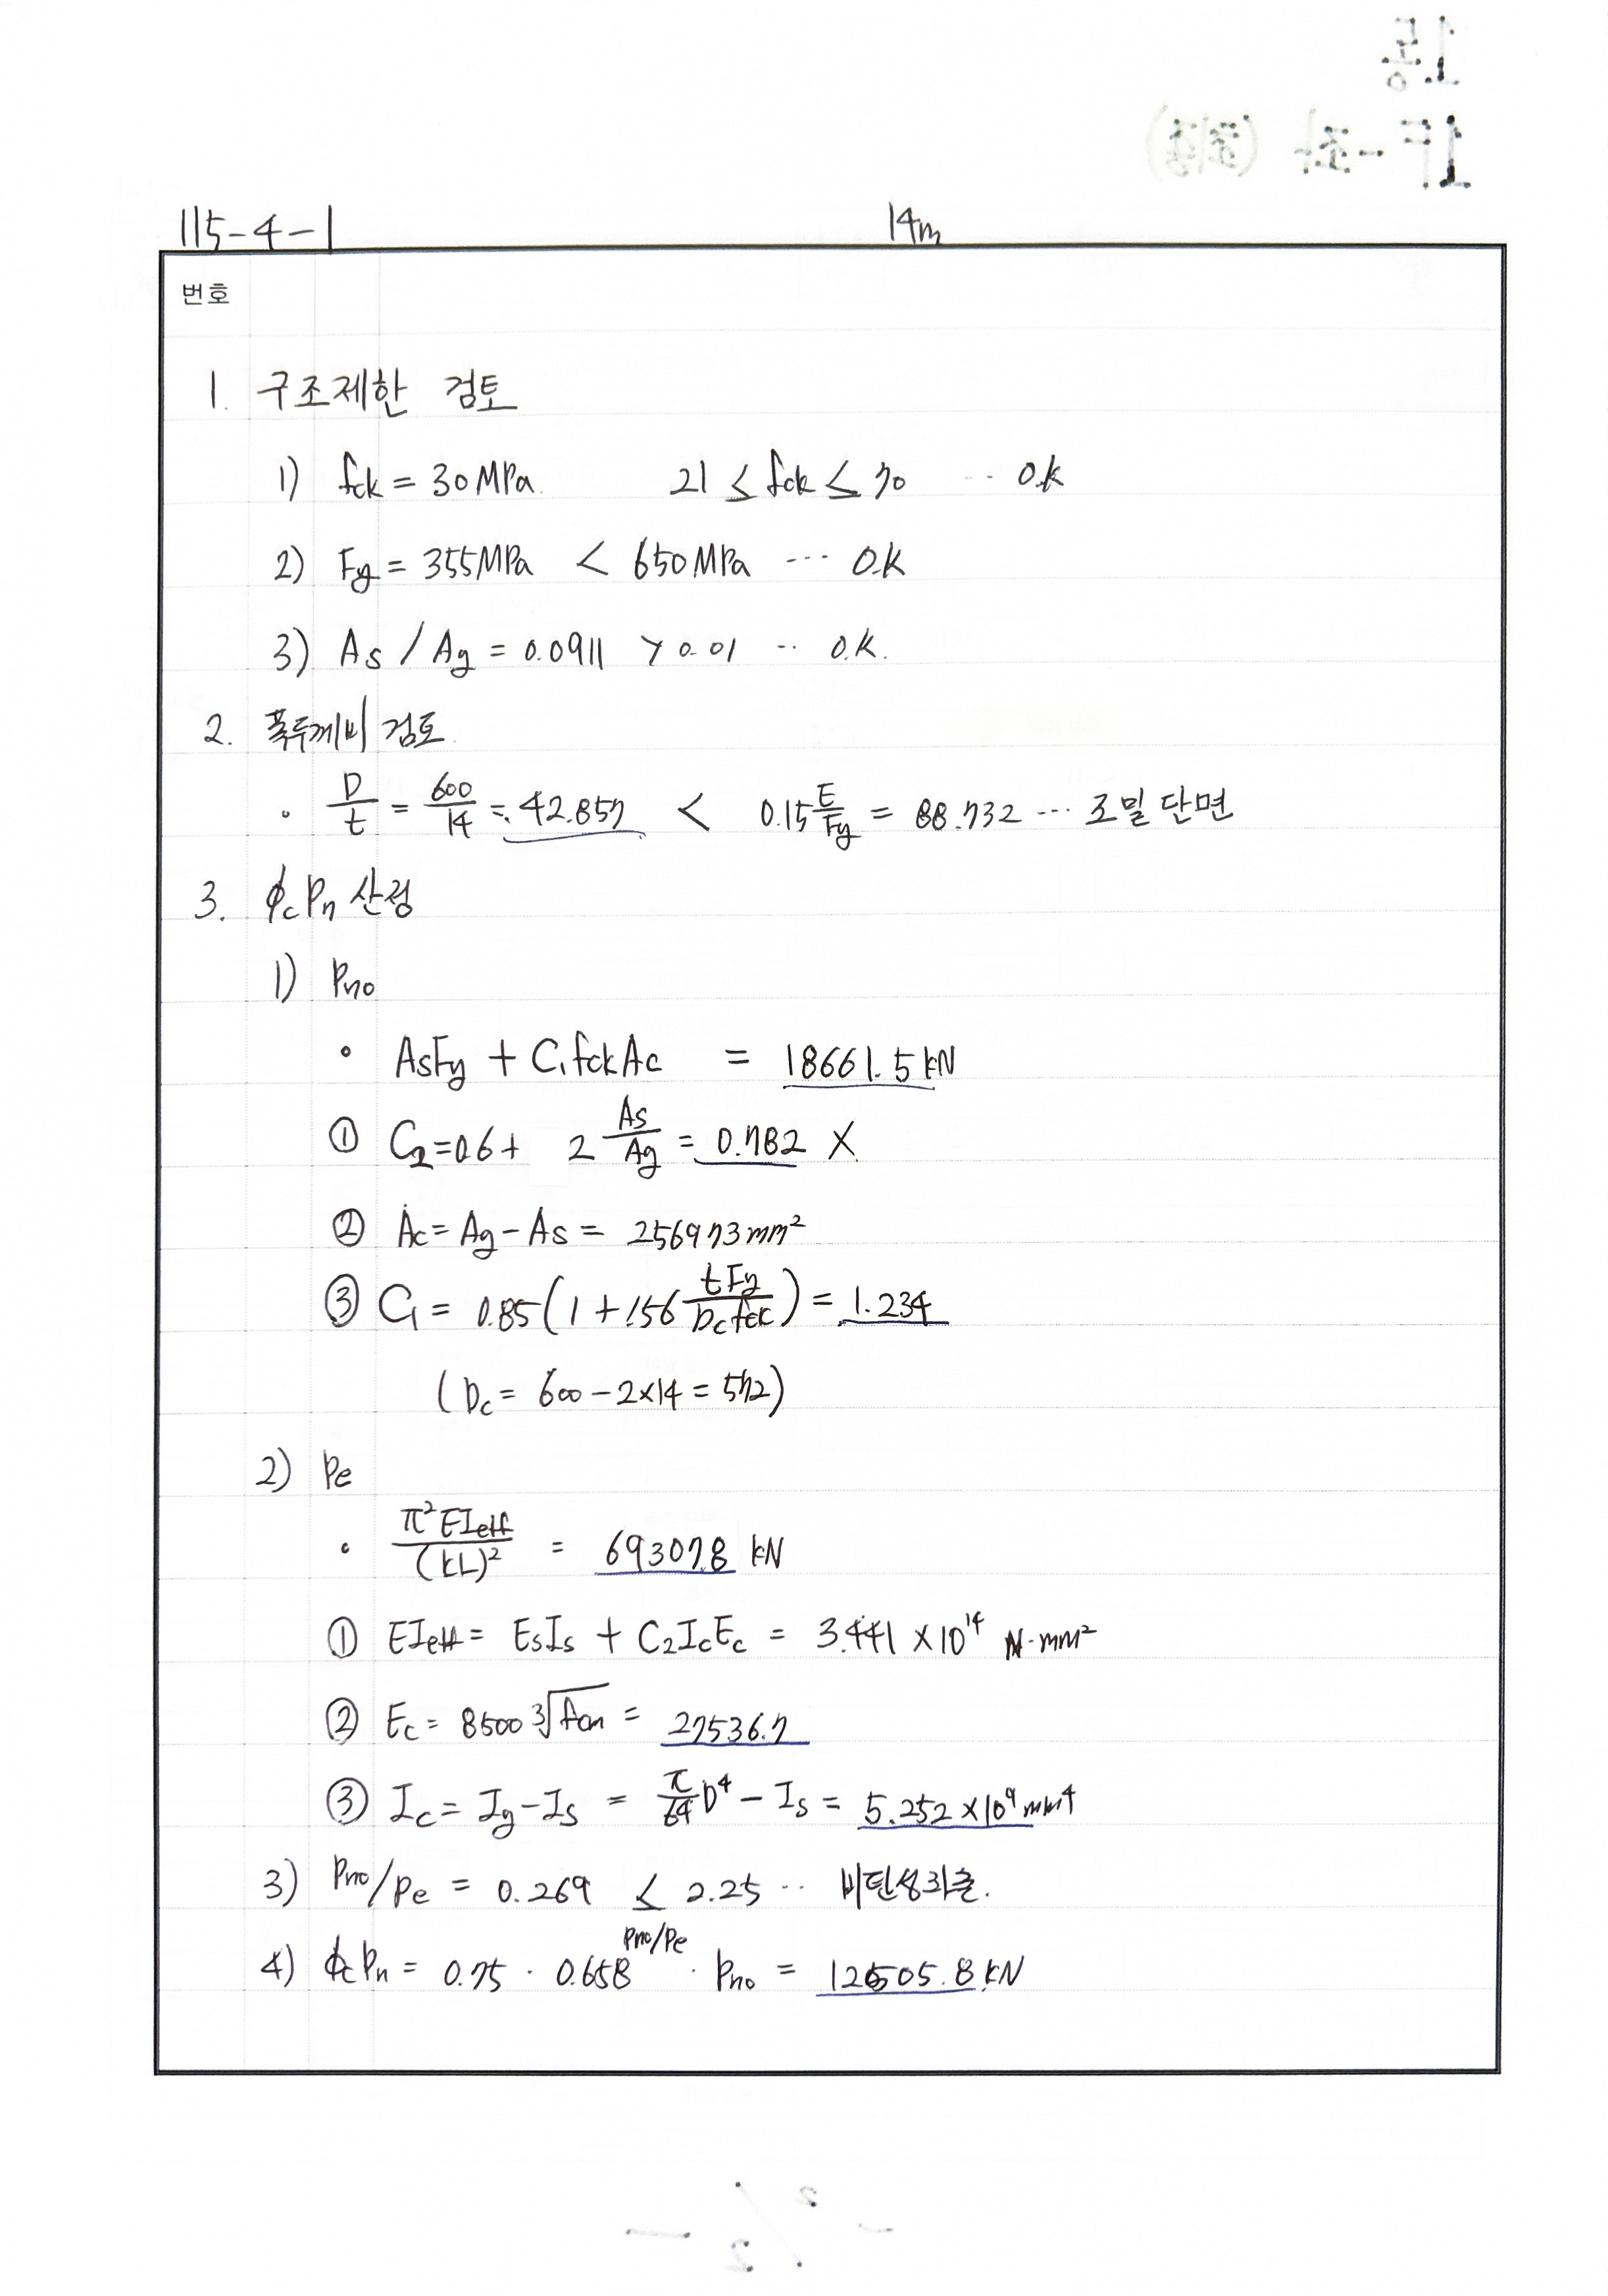 115-4-1 14m
번호
1. 구조제한 검토
1) fck = 30 MPa. 21 ≤ fck ≤ 70 ·· O.K
2) Fy = 355MPa < 650MPa ··· O.K
3) As / Ag = 0.0911 > 0.01 ·· O.K.
2. 폭두께비 검토
· D/t = 600/14 = 42.857 < 0.15 E/Fy = 88.732 ··· 조밀 단면
3. ϕcPn 산정
1) Pno
· AsFy + C1fckAc = 18661.5 kN
① C2=0.6+ 2 As/Ag = 0.782 X
② Ac = Ag - As = 256973 mm²
③ C1 = 0.85(1 + 1.56 tFy/Dcfck) = 1.234
(Dc = 600 - 2×14 = 572)
2) Pe
· π²EIeff/(kL)² = 69307.8 kN
① EIeff = EsIs + C2IcEc = 3.441 × 10¹⁴ N·mm²
② Ec = 8500 ∛fcm = 27536.7
③ Ic = Ig - Is = π/64 D⁴ - Is = 5.252 × 10⁹ mm⁴
3) Pno/Pe = 0.269 ≤ 2.25 ·· 비탄성좌굴.
4) ϕcPn = 0.75 · 0.658^(Pno/Pe) · Pno = 12505.8 kN